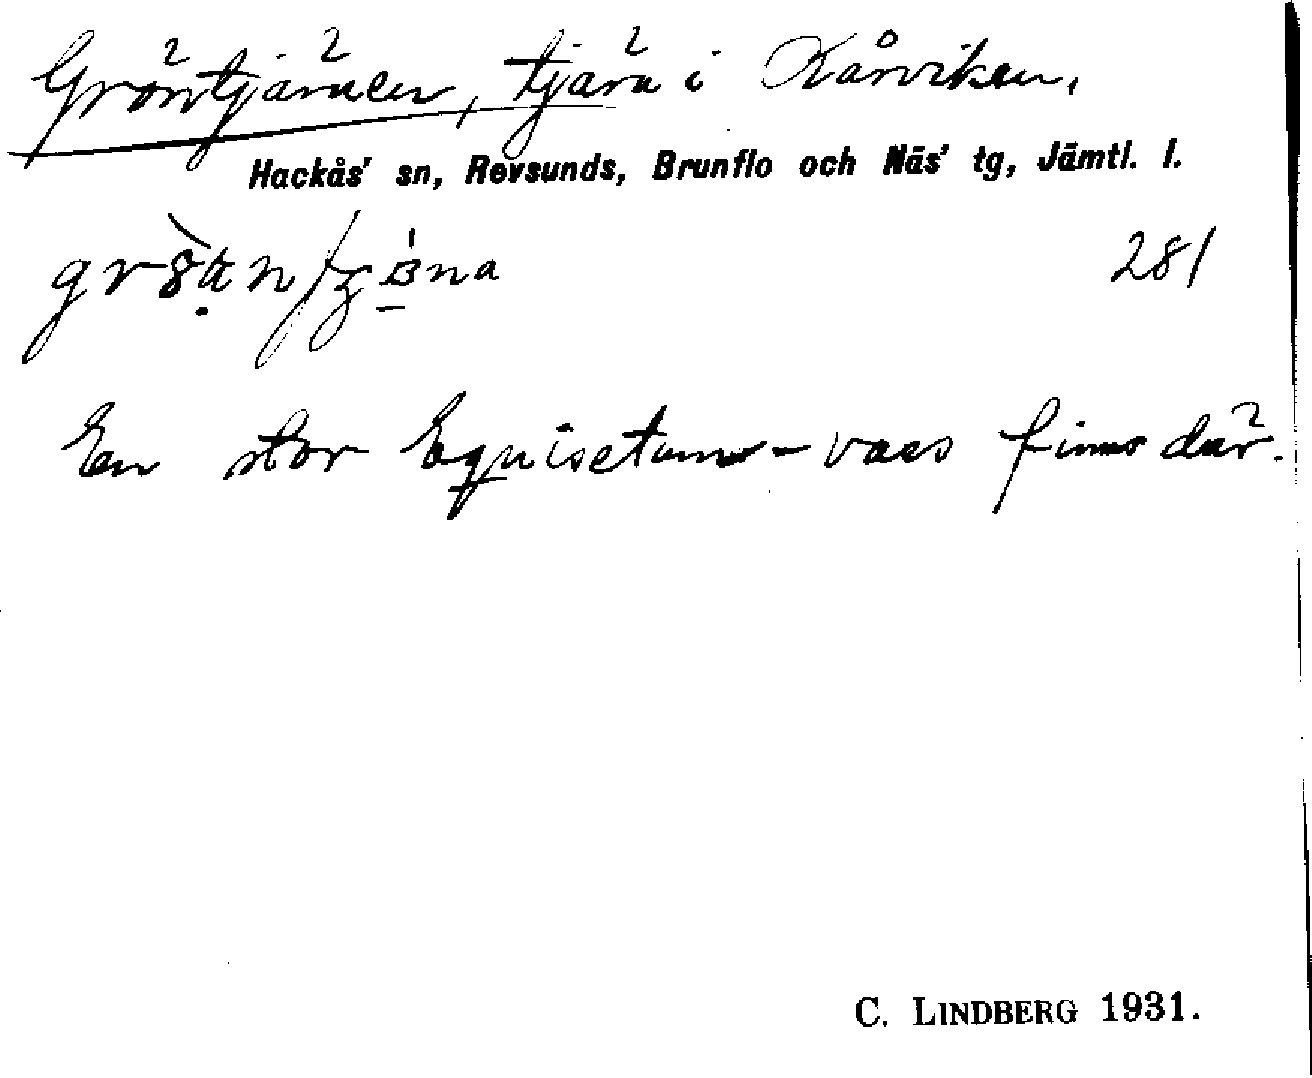 Gröntjärnen, tjärn i Kårviken,
Hackås' sn, Revsunds, Brunflo och Näs' tg, Jämtl. l.
281
En stor Equisetum-vass finns där.
C. LINDBERG 1931.